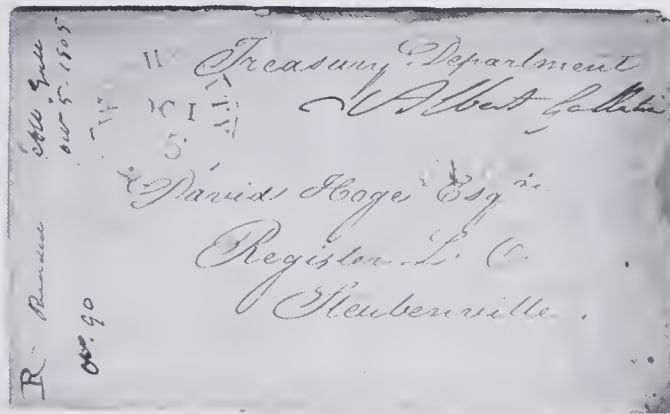 Treasury Department
Albert Gallatin
David Hoge Esqre.
Register L. O.
Steubenville.
5 1805
No. 90
R